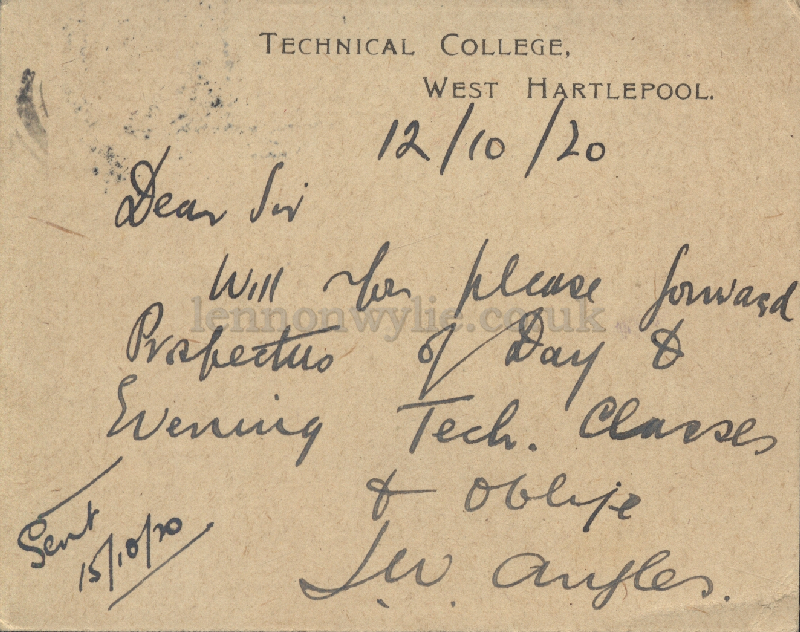 TECHNICAL COLLEGE,
WEST HARTLEPOOL.
12/10/20
Dear Sir
Will you please forward
lennonwylie.co.uk
Prospectus of Day &
Evening Tech. Classes
& Oblige
J.W. Angles.
Sent
15/10/20